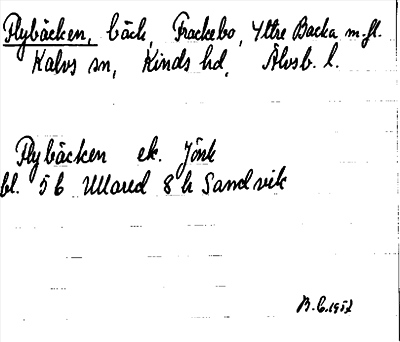 Flybäcken, bäck, Frackebo, Yttre Backa m.fl.
Kalvs sn, Kinds hd, Älvsb. l.
Flybäcken ek. Jönk
bl. 5b Ullared 8h Sandvik
B.G. 1957